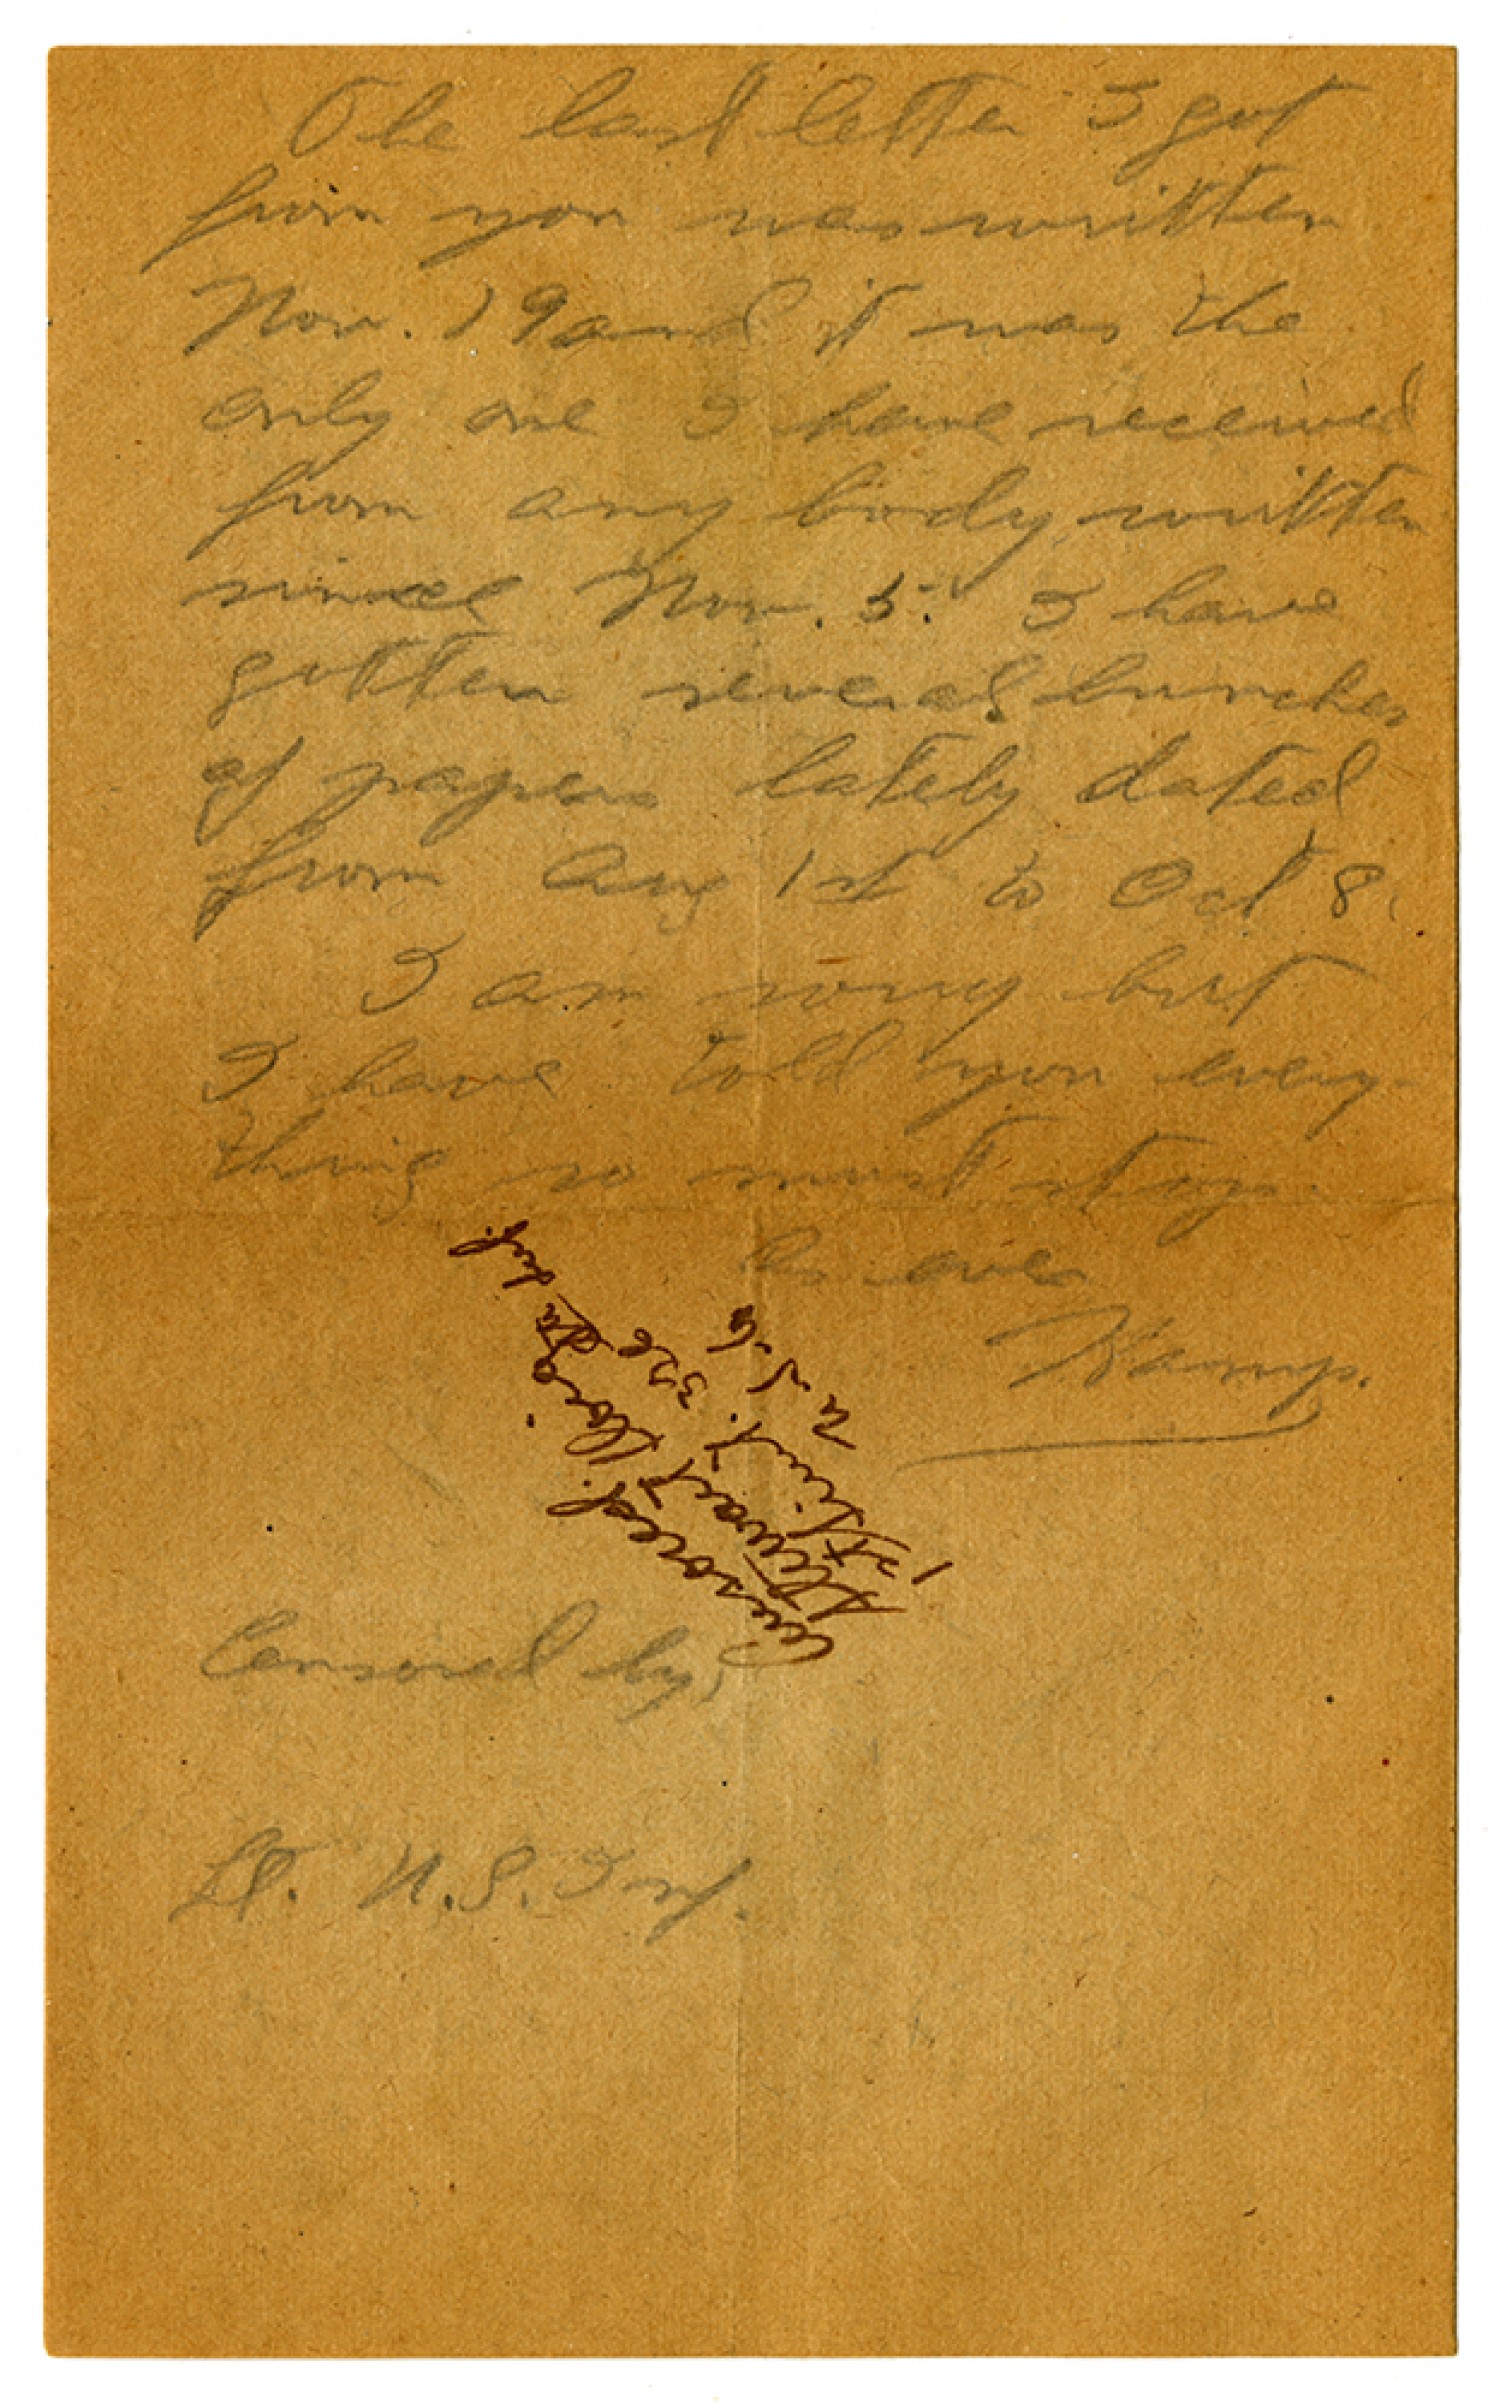 The last letter I got
from you was written
Nov. 19 and it was the
only one I have received
from any body written
since Nov. 5. I have
gotten several bunches
of papers lately dated
from Aug 1st to Oct 8.
I am sorry but
I have told you every-
thing so must stop.
As ever
Kamp.
Censored.
Stewart
1st Lieut. 
U.S.A
Censored by,
Lt. U.S. Inf.